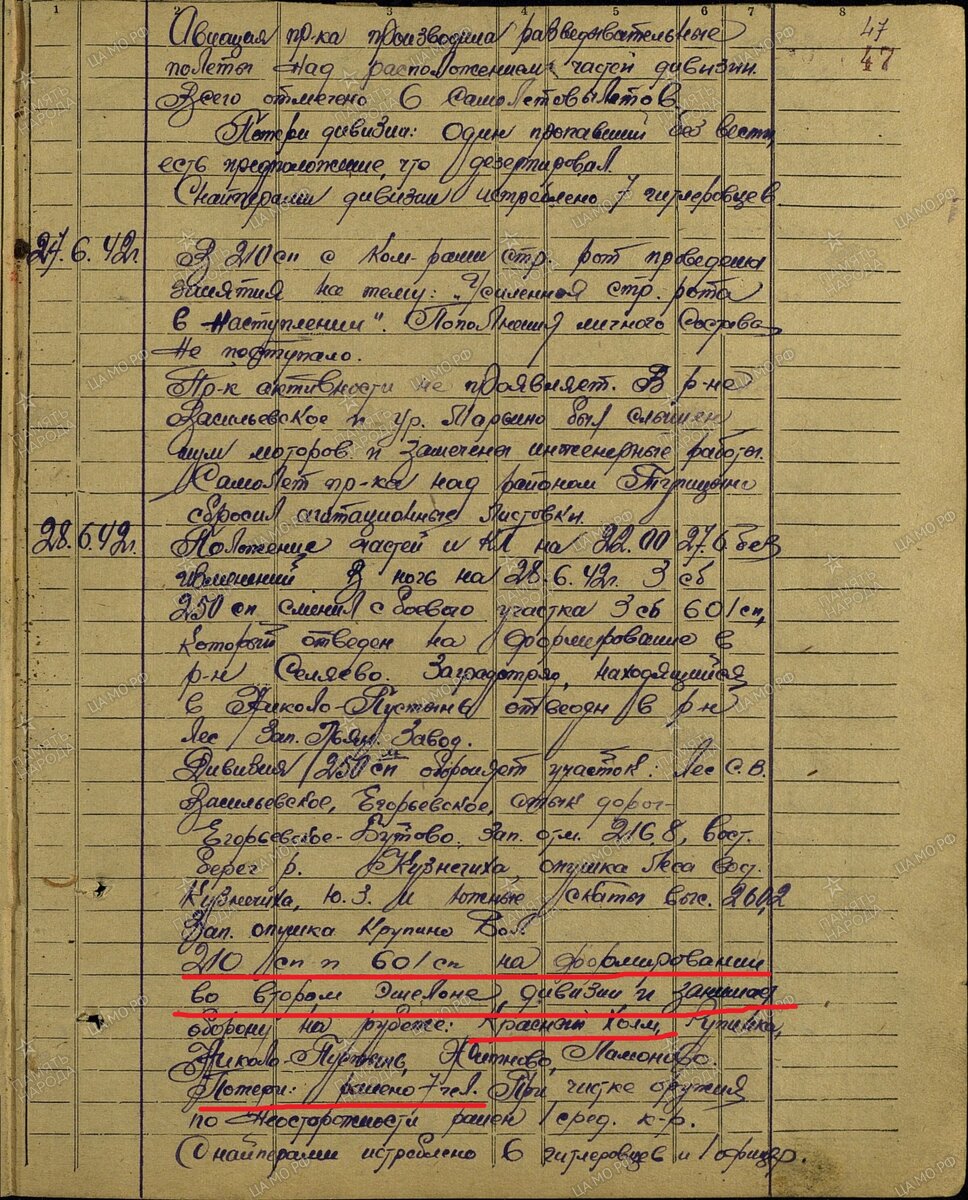 1 2 3 4 5 6 7 8
Авиация пр-ка производила разведывательные 47
полеты над расположением частей дивизии. 47
Всего отмечено 6 самолетовылетов.
Потери дивизии: Один пропавший без вести,
есть предположение, что дезертировал.
Снайперами дивизии истреблено 7 гитлеровцев
27.6.42г. В 210 сп с ком-рами стр. рот проведены
занятия на тему: „Усиленная стр. рота
в наступлении". Пополнения личного состава
не поступало.
Пр-к активности не проявляет. В р-не
Васильевское и ур. Марьино был слышен
шум моторов и замечены инженерные работы.
Самолет пр-ка над районом
сбросил агитационные листовки.
28.6.42г. Положение частей и КП на 22.00 27.6 без
изменений. В ночь на 28.6.42г. 3 сб
250 сп сменил с боевого участка 3 сб 601 сп,
который отведен на формирование в
р-н Селяево. Заградотряд, находящийся
в Николо-Пустынь отведен в р-н
лес Зап. Пьян. Завод.
Дивизия /250 сп обороняет участок: Лес С.В.
Васильевское, Егорьевское, стык дорог
Егорьевское-Бутово, зап. отм. 216,8, вост.
берег р. Кузнечиха, опушка леса вост.
Кузнечиха, Ю.З. и южные скаты выс.
Зап. опушка Крупино Бол.
210 сп и 601 сп на формировании
во втором эшелоне дивизии и занимает
оборону на рубеже: Красный Холм,
Николо-Пустынь, Житново, Мамоново.
Потери: ранено 7 чел. При чистке оружия
по неосторожности ранен 1 сред. к-р.
Снайперами истреблено 6 гитлеровцев и 1 офицер.
ЦАМО.РФ
ПАМЯТЬ НАРОДА